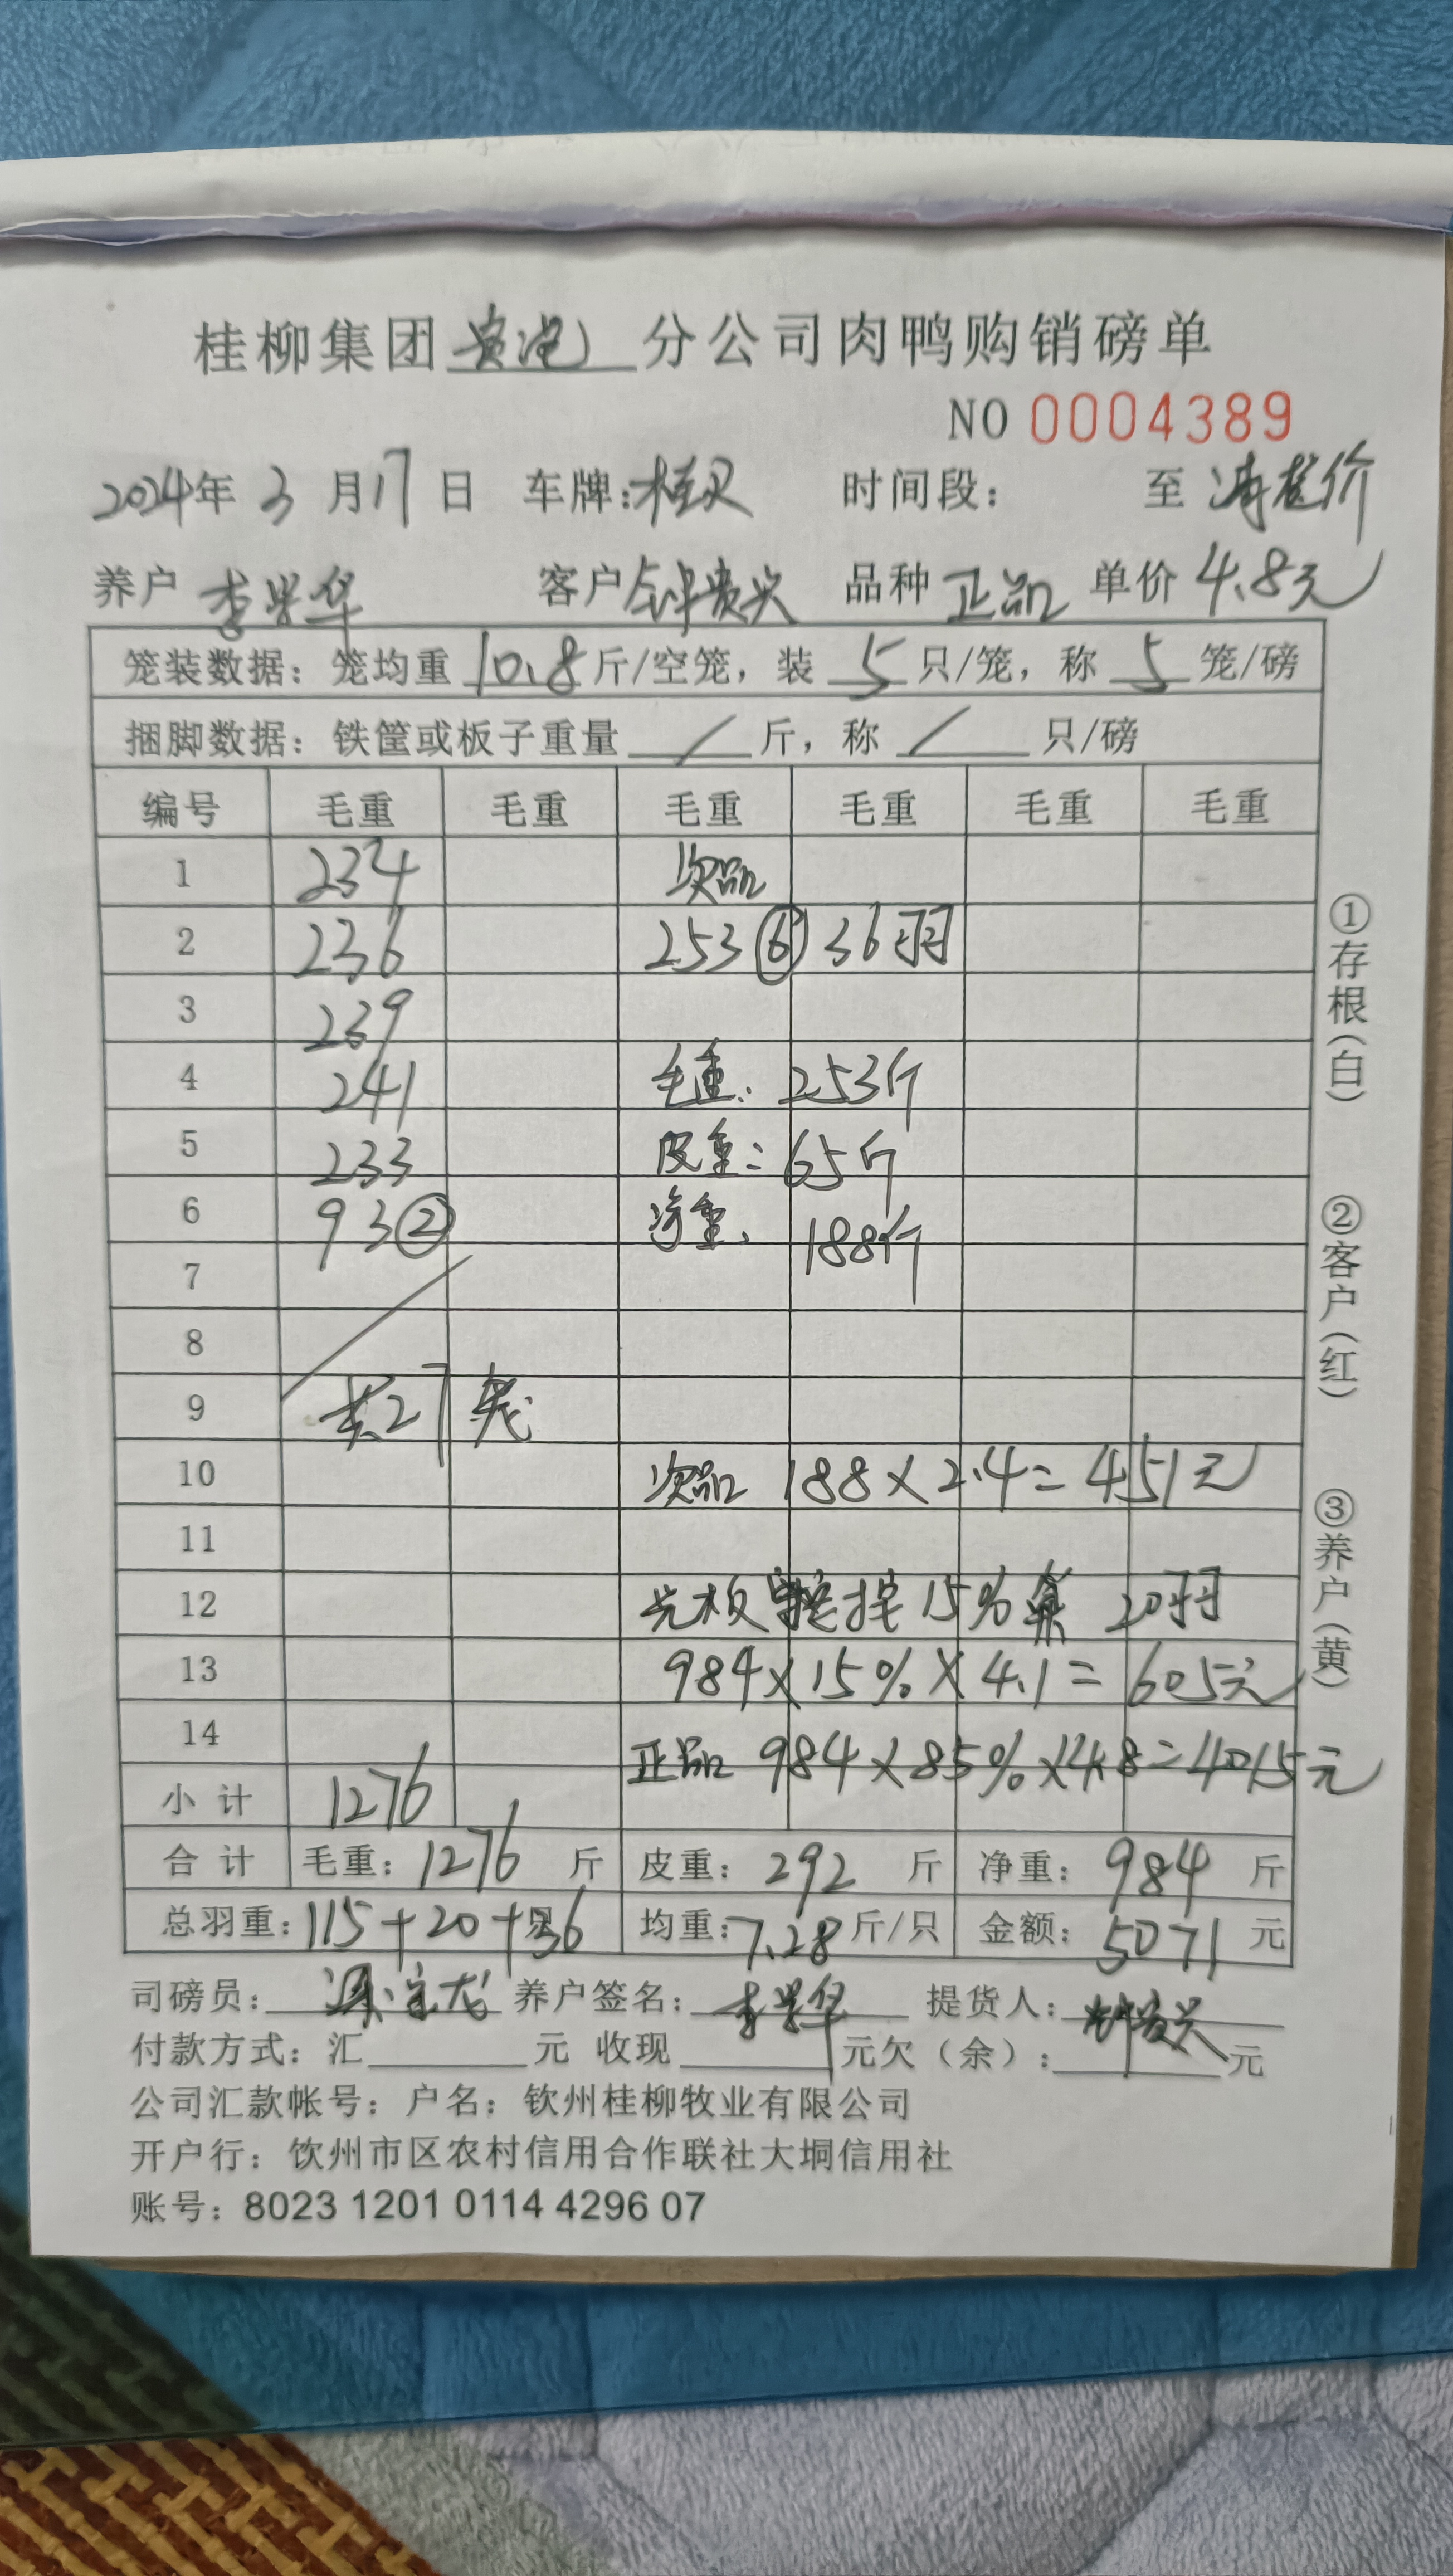 桂柳集团 分公司肉鸭购销磅单
NO 0004389
2024年 3 月 17 日 车牌: 时间段: 至 清栏价
养户 李学华 客户 钟贵兴 品种 正品 单价 4.8元
笼装数据：笼均重 10.8 斤/空笼，装 5 只/笼，称 5 笼/磅
捆脚数据：铁筐或板子重量 / 斤，称 / 只/磅
编号 毛重 毛重 毛重 毛重 毛重 毛重
1 234 次品
2 236 253⑥ 36羽
3 239
4 241 毛重: 253斤
5 233 皮重: 65斤
6 93② 净重: 188斤
7
8
9 共27笼
10 次品 188×2.4=451元
11
12 光板 15% 20羽
13 984×15%×4.1=605元
14 正品 984×85%×4.8=4015元
小 计 1276
合 计 毛重: 1276 斤 皮重: 292 斤 净重: 984 斤
总羽重: 115+20+36 均重: 7.28 斤/只 金额: 5071 元
司磅员: 养户签名: 李学华 提货人:
付款方式: 汇 元 收现 元欠（余）: 元
公司汇款帐号: 户名: 钦州桂柳牧业有限公司
开户行: 饮州市区农村信用合作联社大垌信用社
账号: 8023 1201 0114 4296 07
①存根(白)
②客户(红)
③养户(黄)